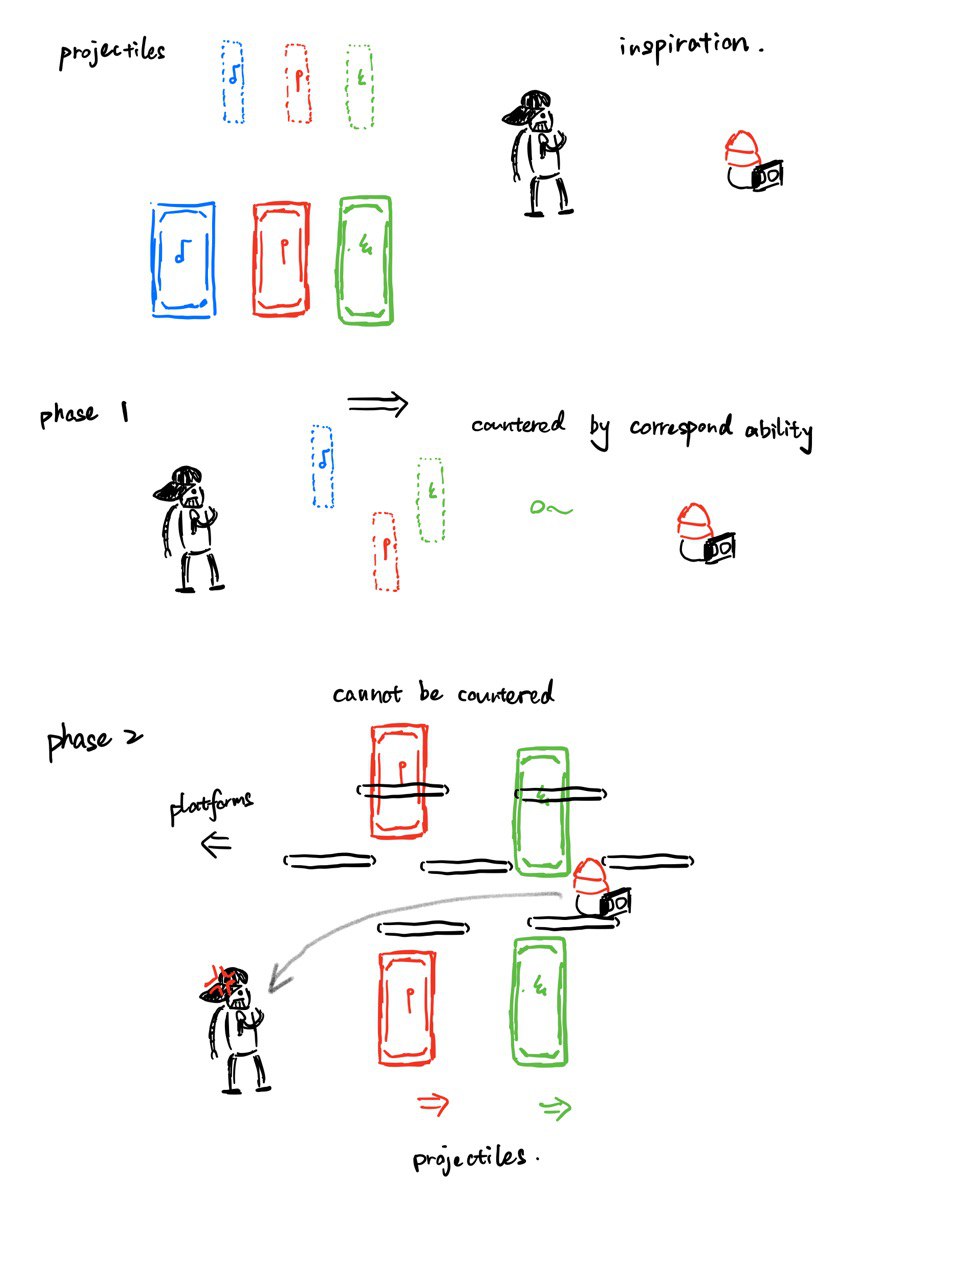 projectiles
inspiration.
phase 1
countered by correspond ability
cannot be countered
phase 2
platforms
projectiles.